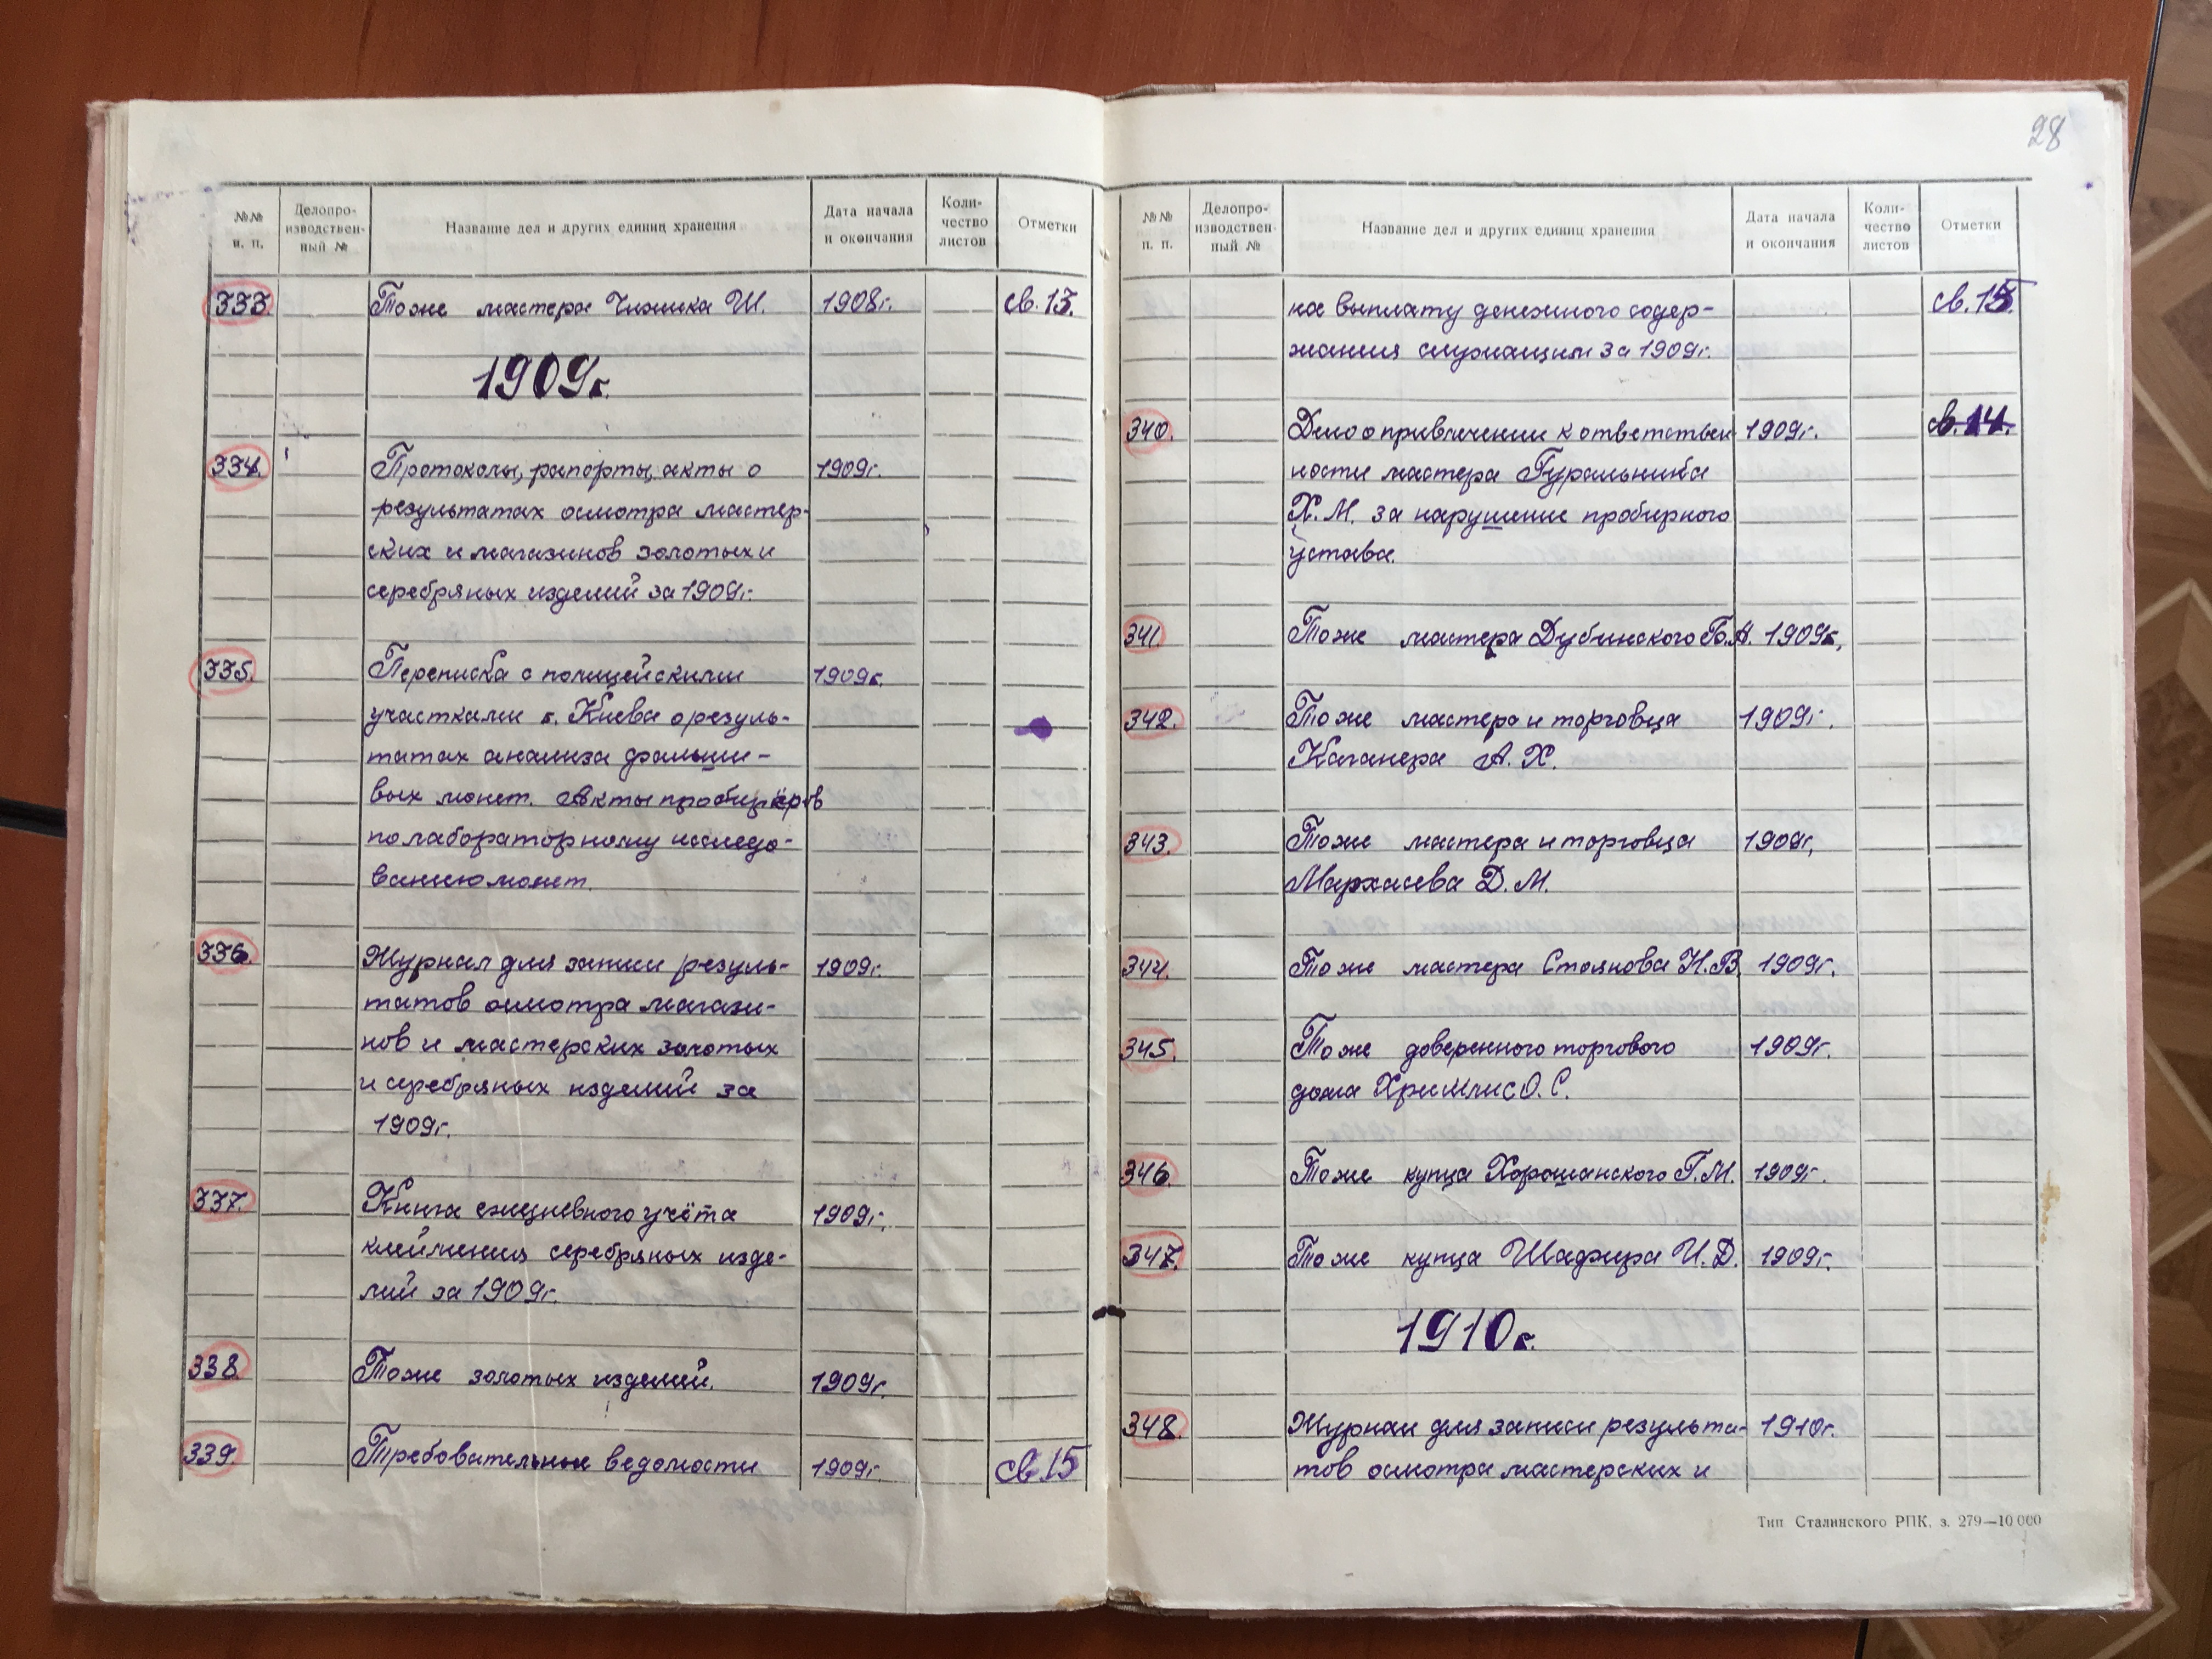 28
№№ п. п. Делопро- изводствен- ный № Название дел и других единиц хранения Дата начала и окончания Коли- чество листов Отметки
333. Тоже мастера Чижика Ш. 1908г. св. 13.
1909г.
334. Протоколы, рапорты, акты о 1909г.
результатах осмотра мастер-
ских и магазинов золотых и
серебряных изделий за 1909г.
335. Переписка с полицейскими 1909г.
участками г. Киева о резуль-
татах анализа фальши-
вых монет. Акты пробирёров
по лабораторному исследо-
ванию монет.
336. Журнал для записи резуль- 1909г.
татов осмотра магази-
нов и мастерских золотых
и серебряных изделий за
1909г.
337. Книга ежедневного учёта 1909г.
клеймения серебряных изде-
лий за 1909г.
338. Тоже золотых изделий. 1909г.
339. Требовательные ведомости 1909г. св. 15
№№ п. п. Делопро- изводствен- ный № Название дел и других единиц хранения Дата начала и окончания Коли- чество листов Отметки
на выплату денежного содер- св. 15.
жания служащим за 1909г.
340. Дело о привлечении к ответствен- 1909г. св. 14.
ности мастера Гуральника
Х. М. за нарушение пробирного
устава.
341. Тоже мастера Дубинского Б.А. 1909г.
342. Тоже мастера и торговца 1909г.
Каганера А. Х.
343. Тоже мастера и торговца 1909г.
Мархасева Д. М.
344. Тоже мастера Стоянова Н.В. 1909г.
345. Тоже доверенного торгового 1909г.
дома Хримлис О. С.
346. Тоже купца Хорошанского Г.М. 1909г.
347. Тоже купца Шафира И. Д. 1909г.
1910г.
348. Журнал для записи результа- 1910г.
тов осмотра мастерских и
Тип Сталинского РПК, з. 279—10 000